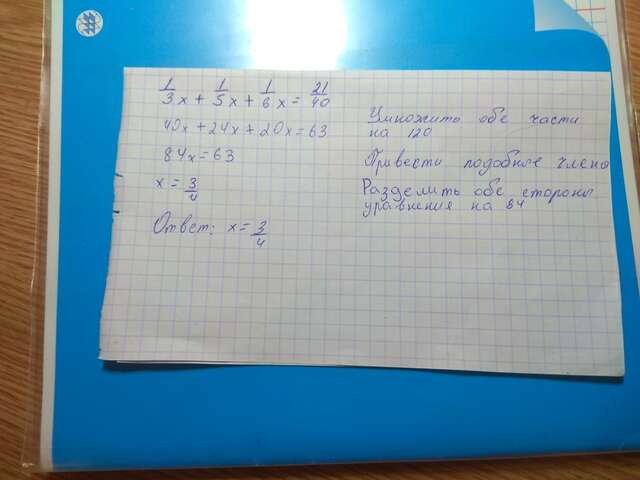 1/3 x + 1/5 x + 1/6 x = 21/40
40x + 24x + 20x = 63
84x = 63
x = 3/4
Ответ: x = 3/4
Умножить обе части
на 120
Привести подобные члены
Разделить обе стороны
уравнения на 84